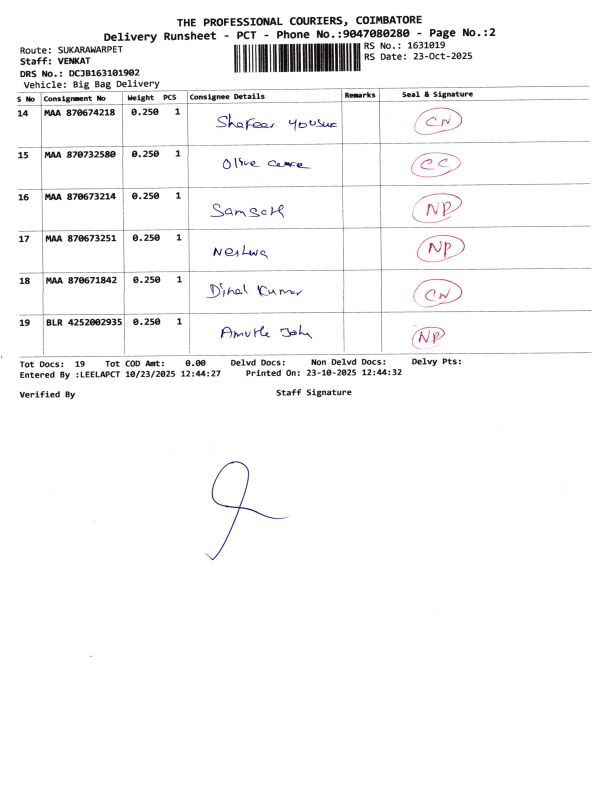 THE PROFESSIONAL COURIERS, COIMBATORE
Delivery Runsheet - PCT - Phone No.:9047080280 - Page No.:2
Route: SUKARAWARPET RS No.: 1631019
Staff: VENKAT RS Date: 23-Oct-2025
DRS No.: DCJB163101902
Vehicle: Big Bag Delivery
S No Consignment No Weight PCS Consignee Details Remarks Seal & Signature
14 MAA 870674218 0.250 1 Shafeer CN
15 MAA 870732580 0.250 1 Olive CC
16 MAA 870673214 0.250 1 NP
17 MAA 870673251 0.250 1 Neshwa NP
18 MAA 870671842 0.250 1 Kumar CN
19 BLR 4252002935 0.250 1 John NP
Tot Docs: 19 Tot COD Amt: 0.00 Delvd Docs: Non Delvd Docs: Delvy Pts:
Entered By :LEELAPCT 10/23/2025 12:44:27 Printed On: 23-10-2025 12:44:32
Verified By Staff Signature